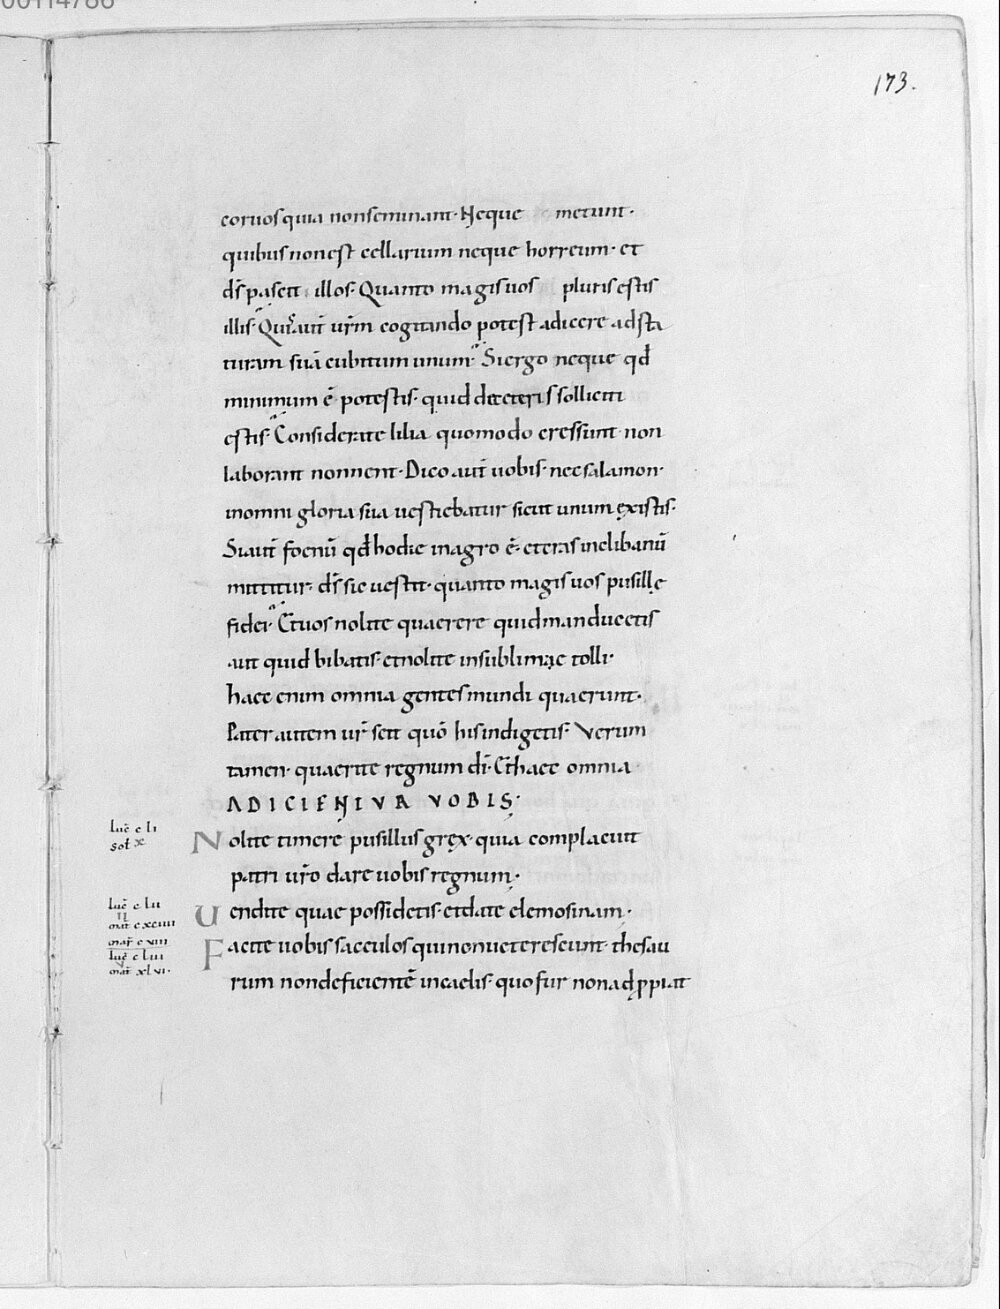 00114786
173.
coruos quia non seminant· Neque metunt·
quibus non est cellarium neque horreum· et
d̄s pascit illos· Quanto magis uos pluris estis
illis· Quis aut̄ ur̄m cogitando potest adicere ad sta
turam suā cubitum unum· Si ergo neque qd̄
minimum ē potestis· quid de ceteris solliciti
estis· Considerate lilia quomodo cressunt· non
laborant non nent· Dico aut̄ uobis· nec salamon·
in omni gloria sua uestiebatur sicut unum ex istis·
Si aut̄ foenū qd̄ hodie in agro ē· et cras in clibanū
mittitur· d̄s sic uestit· quanto magis uos pusille
fidei· Et uos nolite quaerere quid manducetis
aut quid bibatis· et nolite in sublimae tolli·
haec enim omnia gentes mundi quaerunt·
Pater autem ur̄ scit quō his indigetis· Verum
tamen· quaerite regnum d̄i· Et haec omnia
ADICIENTVR VOBIS·
luc̄ c li
sol x
Nolite timere pusillus grex· quia complacuit
patri ur̄o dare uobis regnum·
luc̄ c lii
mat̄ c xciiii
Uendite quae possidetis· et date elemosinam·
mar̄ c viii
luc̄ c liii
mat̄ xlvi·
Facite uobis sacculos qui non ueterescunt· thesau
rum non deficientē in caelis· quo fur non adp̱piat